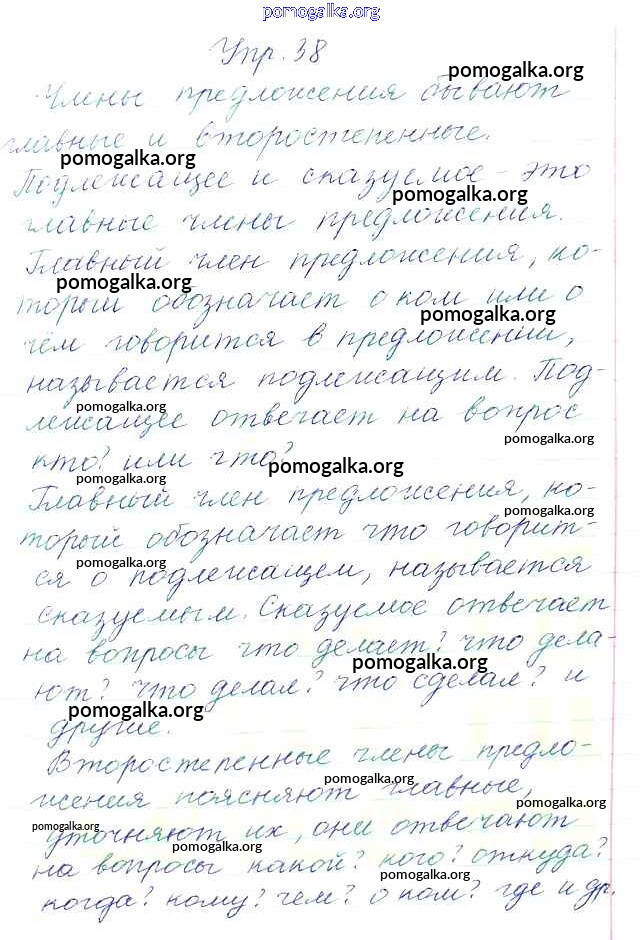 pomogalka.org
Упр. 38
pomogalka.org
Члены предложения бывают
главные и второстепенные.
pomogalka.org
Подлежащее и сказуемое - это
pomogalka.org
главные члены предложения.
Главный член предложения, ко-
pomogalka.org
торый обозначает о ком или о
pomogalka.org
чём говорится в предложении,
называется подлежащим. Под-
pomogalka.org
лежащее отвечает на вопрос
pomogalka.org
кто? или что?
pomogalka.org
pomogalka.org
Главный член предложения, ко-
pomogalka.org
торый обозначает что говорит-
pomogalka.org
ся о подлежащем, называется
сказуемым. Сказуемое отвечает
на вопросы что делает? что дела-
pomogalka.org
ют? что делал? что сделал? и
pomogalka.org
другие.
Второстепенные члены предло-
pomogalka.org
жения поясняют главные,
pomogalka.org
pomogalka.org
уточняют их, они отвечают
pomogalka.org
на вопросы какой? кого? откуда?
pomogalka.org
когда? кому? чем? о ком? где и др.